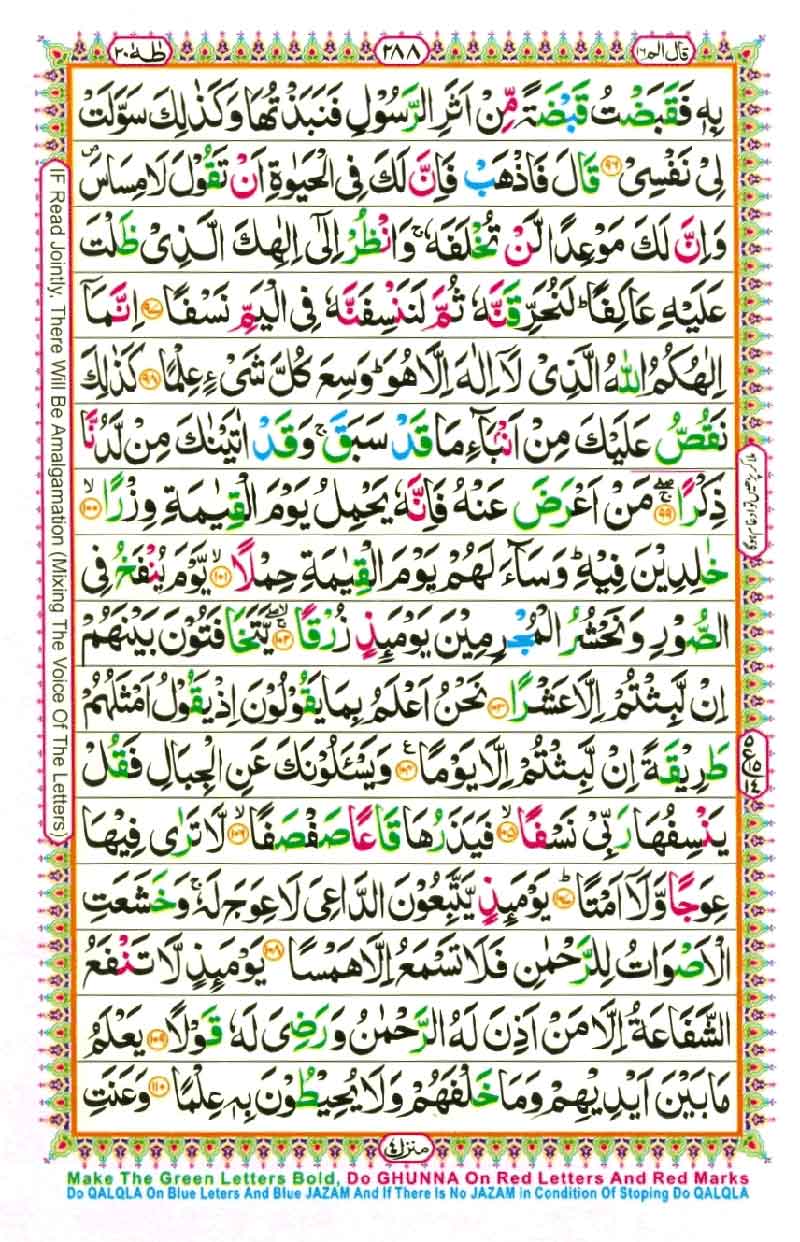 طٰهٰ ٢٠
٢٨٨
قال الم ١٦
بِهٖ فَقَبَضْتُ قَبْضَةً مِّنْ اَثَرِ الرَّسُوْلِ فَنَبَذْتُهَا وَكَذٰلِكَ سَوَّلَتْ
لِىْ نَفْسِىْ ٩٦ قَالَ فَاذْهَبْ فَاِنَّ لَكَ فِى الْحَيٰوةِ اَنْ تَقُوْلَ لَا مِسَاسَ ص
وَاِنَّ لَكَ مَوْعِدًا لَّنْ تُخْلَفَهٗ ج وَانْظُرْ اِلٰٓى اِلٰهِكَ الَّذِىْ ظَلْتَ
عَلَيْهِ عَاكِفًا ط لَنُحَرِّقَنَّهٗ ثُمَّ لَنَنْسِفَنَّهٗ فِى الْيَمِّ نَسْفًا ٩٧ اِنَّمَآ
اِلٰهُكُمُ اللّٰهُ الَّذِىْ لَآ اِلٰهَ اِلَّا هُوَ ط وَسِعَ كُلَّ شَىْءٍ عِلْمًا ٩٨ كَذٰلِكَ
نَقُصُّ عَلَيْكَ مِنْ اَنْۢبَآءِ مَا قَدْ سَبَقَ ج وَقَدْ اٰتَيْنٰكَ مِنْ لَّدُنَّا
ذِكْرًا ٩٩ مَنْ اَعْرَضَ عَنْهُ فَاِنَّهٗ يَحْمِلُ يَوْمَ الْقِيٰمَةِ وِزْرًا لا ١٠٠
خٰلِدِيْنَ فِيْهِ ط وَسَآءَ لَهُمْ يَوْمَ الْقِيٰمَةِ حِمْلًا لا ١٠١ يَّوْمَ يُنْفَخُ فِى
الصُّوْرِ وَنَحْشُرُ الْمُجْرِمِيْنَ يَوْمَئِذٍ زُرْقًا ١٠٢ يَّتَخَافَتُوْنَ بَيْنَهُمْ
اِنْ لَّبِثْتُمْ اِلَّا عَشْرًا ١٠٣ نَحْنُ اَعْلَمُ بِمَا يَقُوْلُوْنَ اِذْ يَقُوْلُ اَمْثَلُهُمْ
طَرِيْقَةً اِنْ لَّبِثْتُمْ اِلَّا يَوْمًا ع ١٠٤ وَيَسْـَٔلُوْنَكَ عَنِ الْجِبَالِ فَقُلْ
يَنْسِفُهَا رَبِّىْ نَسْفًا لا ١٠٥ فَيَذَرُهَا قَاعًا صَفْصَفًا لا ١٠٦ لَّا تَرٰى فِيْهَا
عِوَجًا وَّلَآ اَمْتًا ط ١٠٧ يَوْمَئِذٍ يَّتَّبِعُوْنَ الدَّاعِىَ لَا عِوَجَ لَهٗ ج وَخَشَعَتِ
الْاَصْوَاتُ لِلرَّحْمٰنِ فَلَا تَسْمَعُ اِلَّا هَمْسًا ١٠٨ يَوْمَئِذٍ لَّا تَنْفَعُ
الشَّفَاعَةُ اِلَّا مَنْ اَذِنَ لَهُ الرَّحْمٰنُ وَرَضِىَ لَهٗ قَوْلًا ١٠٩ يَعْلَمُ
مَا بَيْنَ اَيْدِيْهِمْ وَمَا خَلْفَهُمْ وَلَا يُحِيْطُوْنَ بِهٖ عِلْمًا ١١٠ وَعَنَتِ
منزل ٤
IF Read Jointly, There Will Be Amalgamation (Mixing The Voice Of The Letters)
Make The Green Letters Bold, Do GHUNNA On Red Letters And Red Marks
Do QALQLA On Blue Leters And Blue JAZAM And If There Is No JAZAM in Condition Of Stoping Do QALQLA